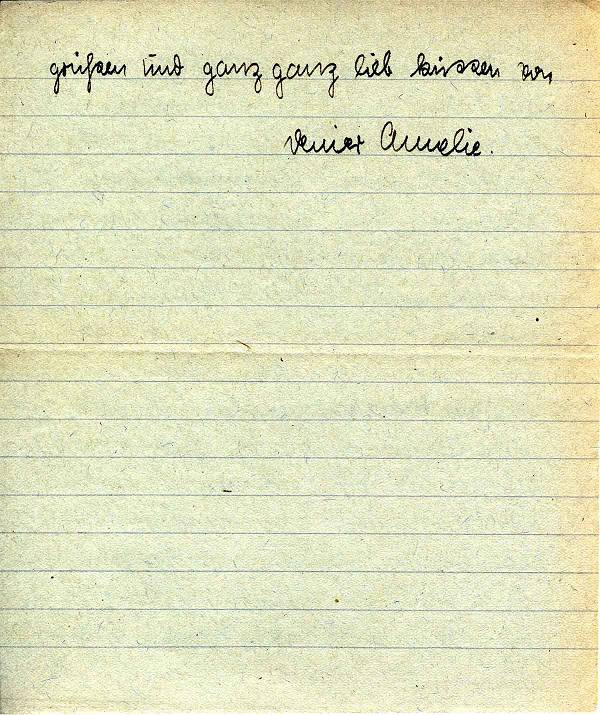 grüßen und ganz ganz lieb küssen von
Deiner Amelie.